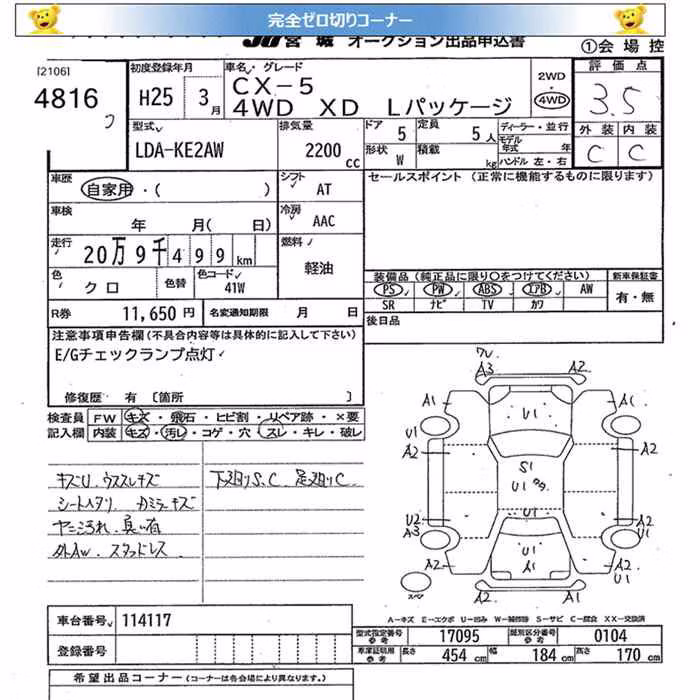 完全ゼロ切りコーナー
JU宮城 オークション出品申込書
①会場控
[2106]
4816
初度登録年月
H25 3月
車名・グレード
CX-5
4WD XD Lパッケージ
2WD
4WD
評価点
3.5
外装 内装
C C
型式
LDA-KE2AW
排気量
2200cc
ドア 5
定員 5人
形状 W
積載 kg
ディーラー・並行
モデル年式 年
ハンドル 左・右
車歴
自家用・( )
シフト
AT
セールスポイント (正常に機能するものに限ります)
車検
年 月( 日)
冷房
AAC
走行
20万9千499km
燃料
軽油
色
クロ
色替
色コード
41W
装備品(純正品に限り○をつけてください)
PS PW ABS エアB AW
SR ナビ TV カワ
新車保証書
有・無
R券
11,650円
名変通知期限 月 日
後日品
注意事項申告欄(不具合内容等は具体的に記入して下さい)
E/Gチェックランプ点灯
修復歴 有 [箇所 ]
検査員
記入欄
FW キズ・飛石・ヒビ割・リペア跡・×要
内装 キズ・汚レ・コゲ・穴・スレ・キレ・破レ
キズU ウススレキズ
シートヘタリ
ヤニ汚れ 臭い有
外AW スタッドレス
下廻りS、C 足廻りC
ワレ
A3 A2
A1 U1 A1
U1
A2 A2
S1
U1
U2 U1 A2
A3 U1
A2 U1 A1 A2 U1
スペア
A2 A1
A-キズ E-エクボ U-凹み W-補修跡 S-サビ C-腐食 XX-交換済
車台番号
114117
登録番号
型式指定番号 参考 17095
類別区分番号 参考 0104
車庫証明用 参考 長さ 454cm 幅 184cm 高さ 170cm
希望出品コーナー(コーナーは各会場により異なります。)